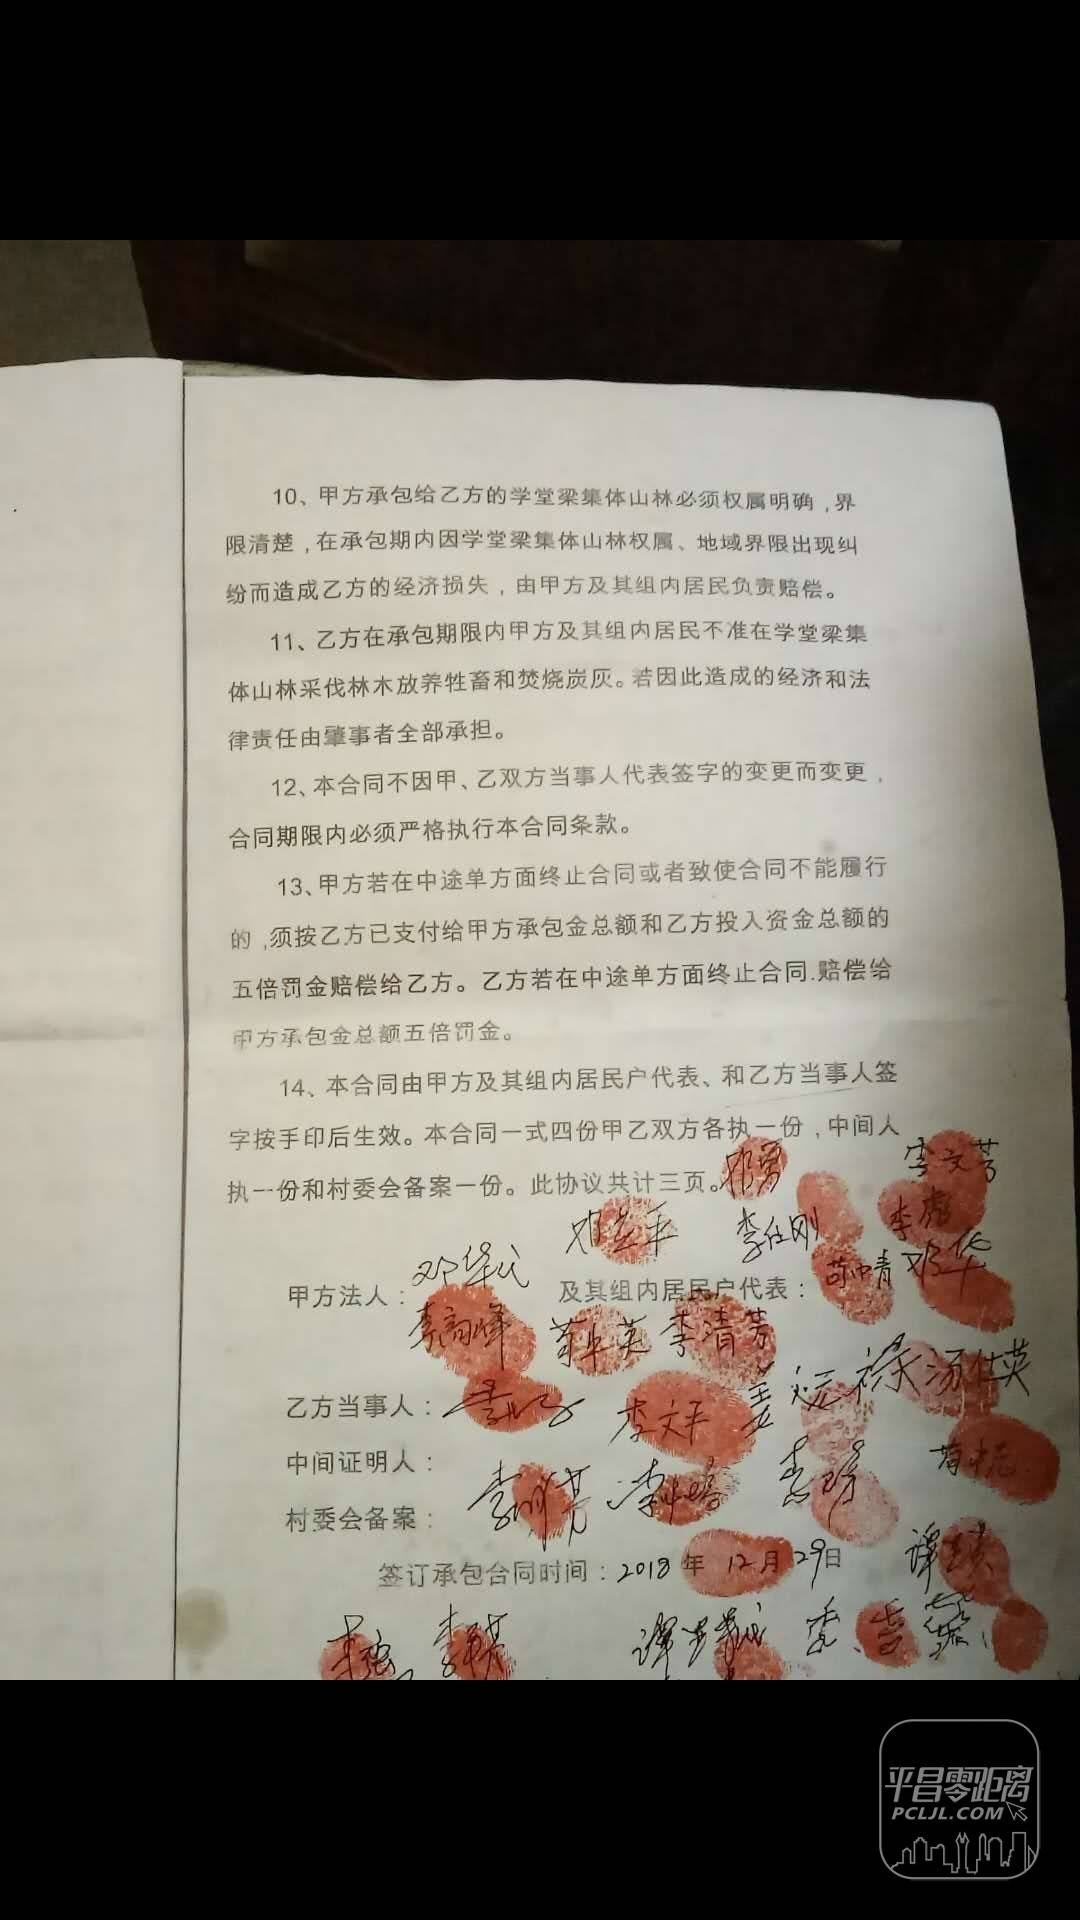 10、甲方承包给乙方的学堂梁集体山林必须权属明确，界
限清楚，在承包期内因学堂梁集体山林权属、地域界限出现纠
纷而造成乙方的经济损失，由甲方及其组内居民负责赔偿。
11、乙方在承包期限内甲方及其组内居民不准在学堂梁集
体山林采伐林木放养牲畜和焚烧炭灰。若因此造成的经济和法
律责任由肇事者全部承担。
12、本合同不因甲、乙双方当事人代表签字的变更而变更，
合同期限内必须严格执行本合同条款。
13、甲方若在中途单方面终止合同或者致使合同不能履行
的，须按乙方已支付给甲方承包金总额和乙方投入资金总额的
五倍罚金赔偿给乙方。乙方若在中途单方面终止合同.赔偿给
甲方承包金总额五倍罚金。
14、本合同由甲方及其组内居民户代表、和乙方当事人签
字按手印后生效。本合同一式四份甲乙双方各执一份，中间人
执一份和村委会备案一份。此协议共计三页。邓勇 李文芳
李彪
李仕刚
甲方法人： 及其组内居民户代表： 苟中青 邓华
李高峰 李清芳
乙方当事人： 李文平 汤仕英
中间证明人：
村委会备案：
签订承包合同时间：2018年12月29日
平昌零距离
PCLJL.COM